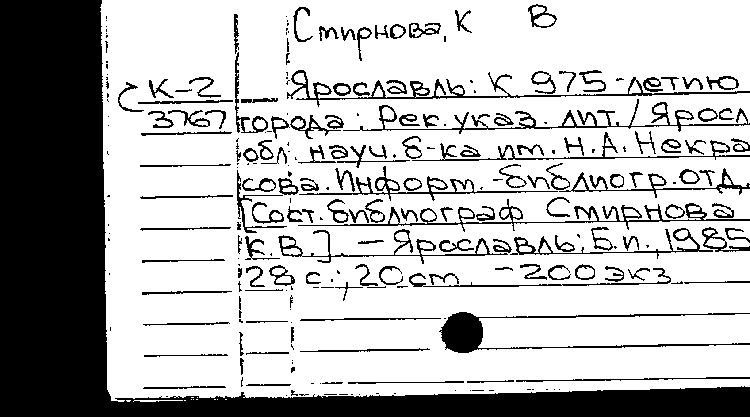 Смирнова, К В
К-2 Ярославль: К 975-летию
3767 города: Рек. указ. лит. / Яросл
обл. науч. б-ка им. Н.А. Некра
сова. Информ.-библиогр. отд.
[Сост. библиограф Смирнова
К.В.]. — Ярославль: Б.и., 1985
28 с.; 20 ст. - 200 экз